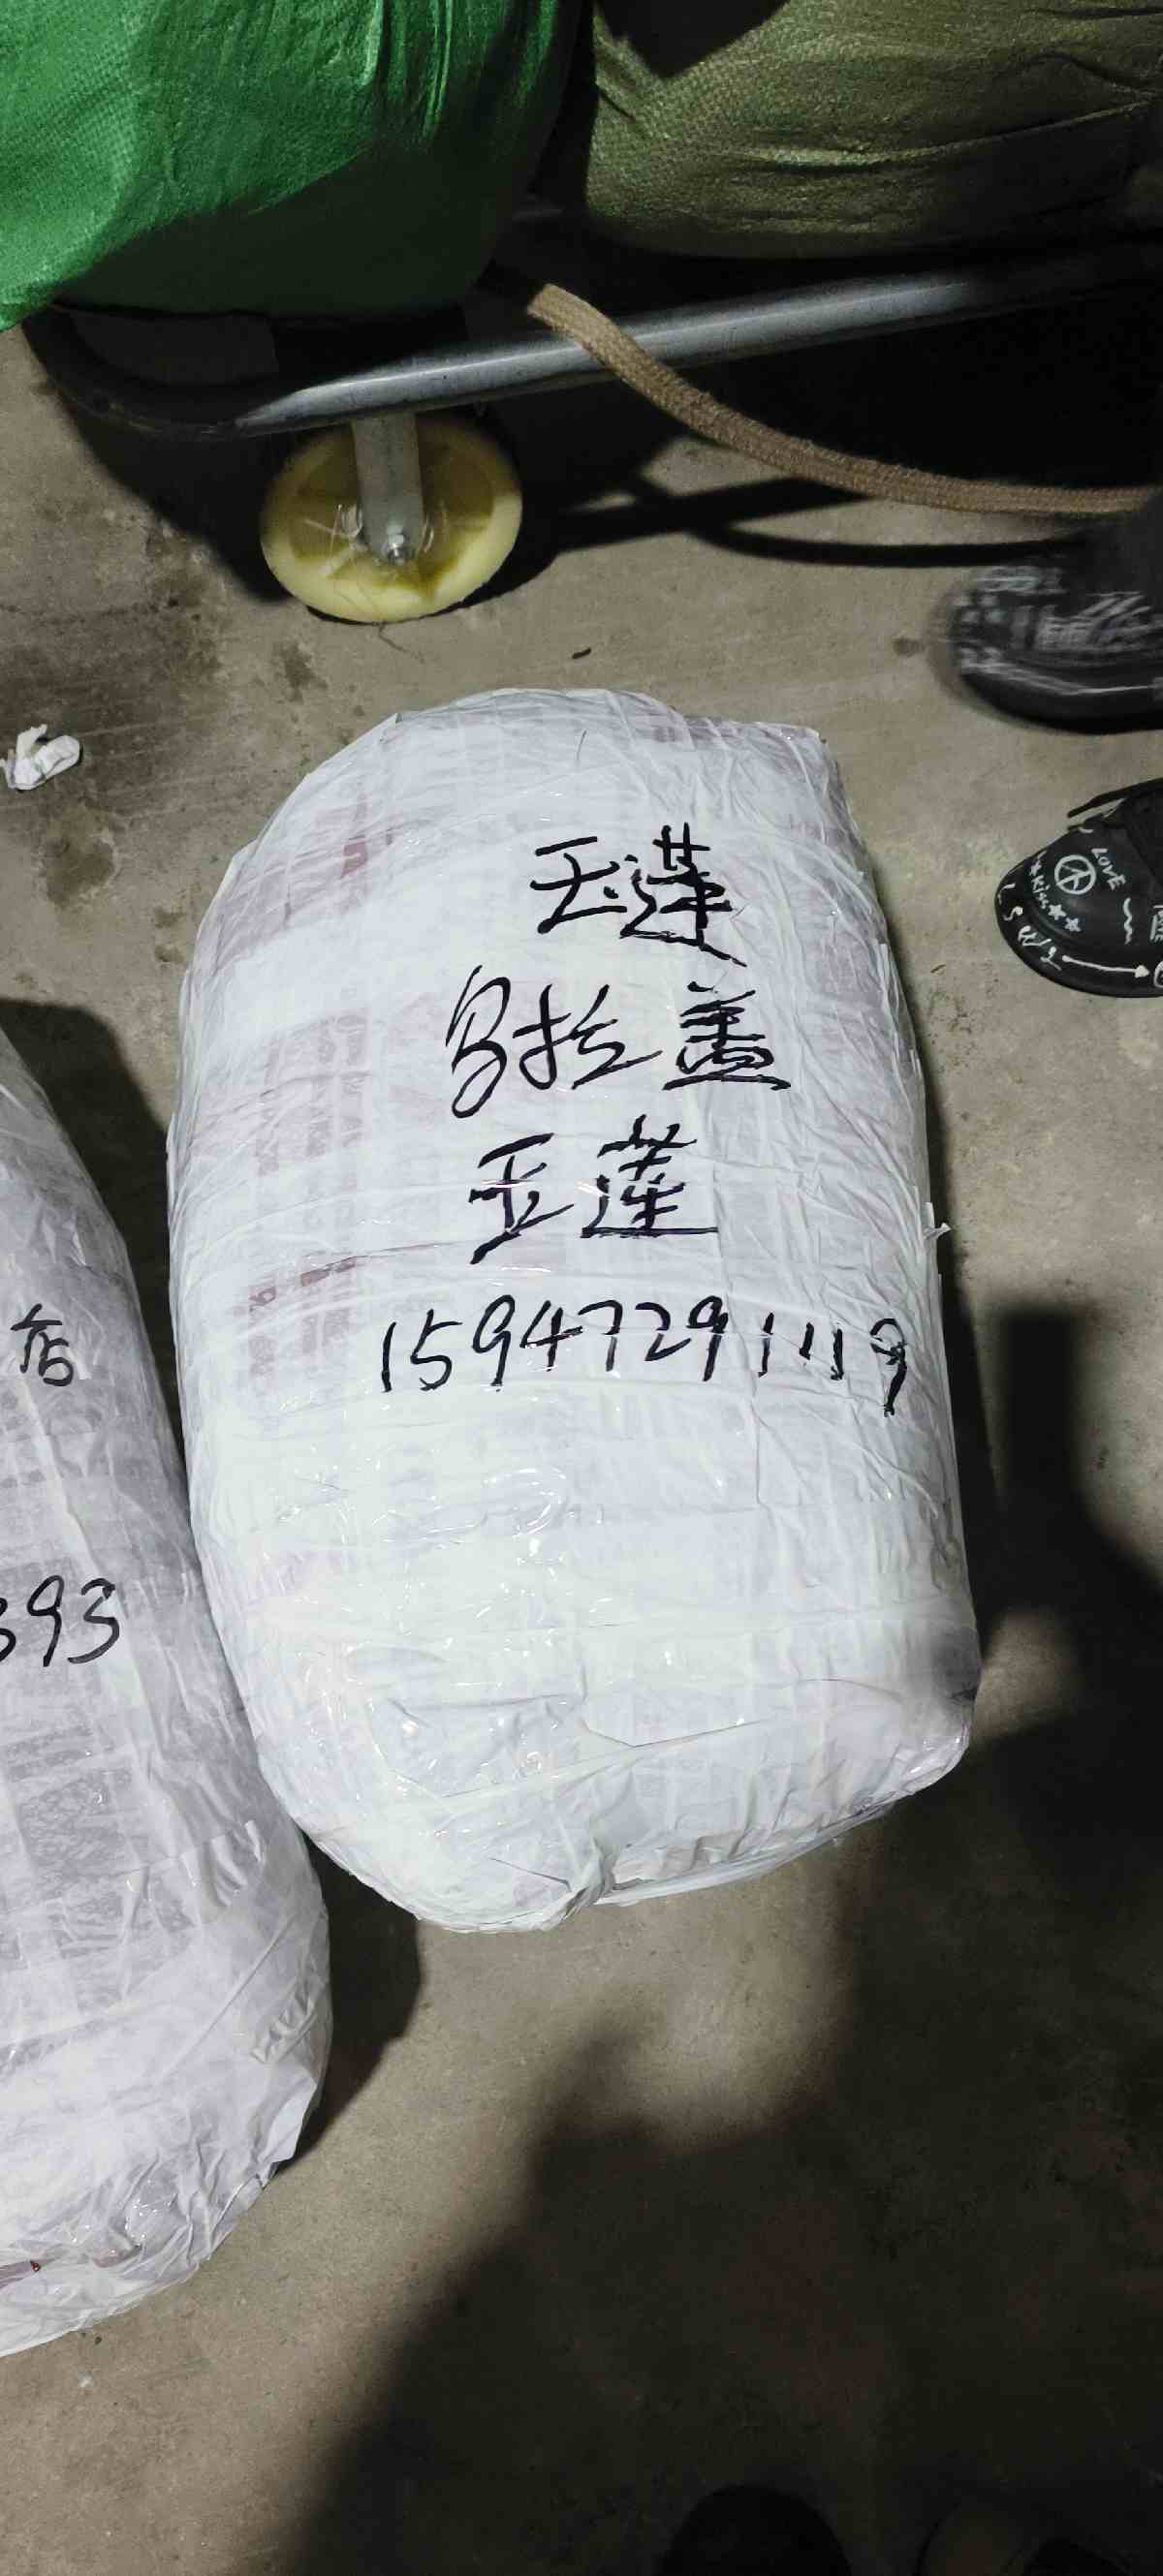 玉莲
乌拉盖
玉莲
15947291119
店
393
LOVE